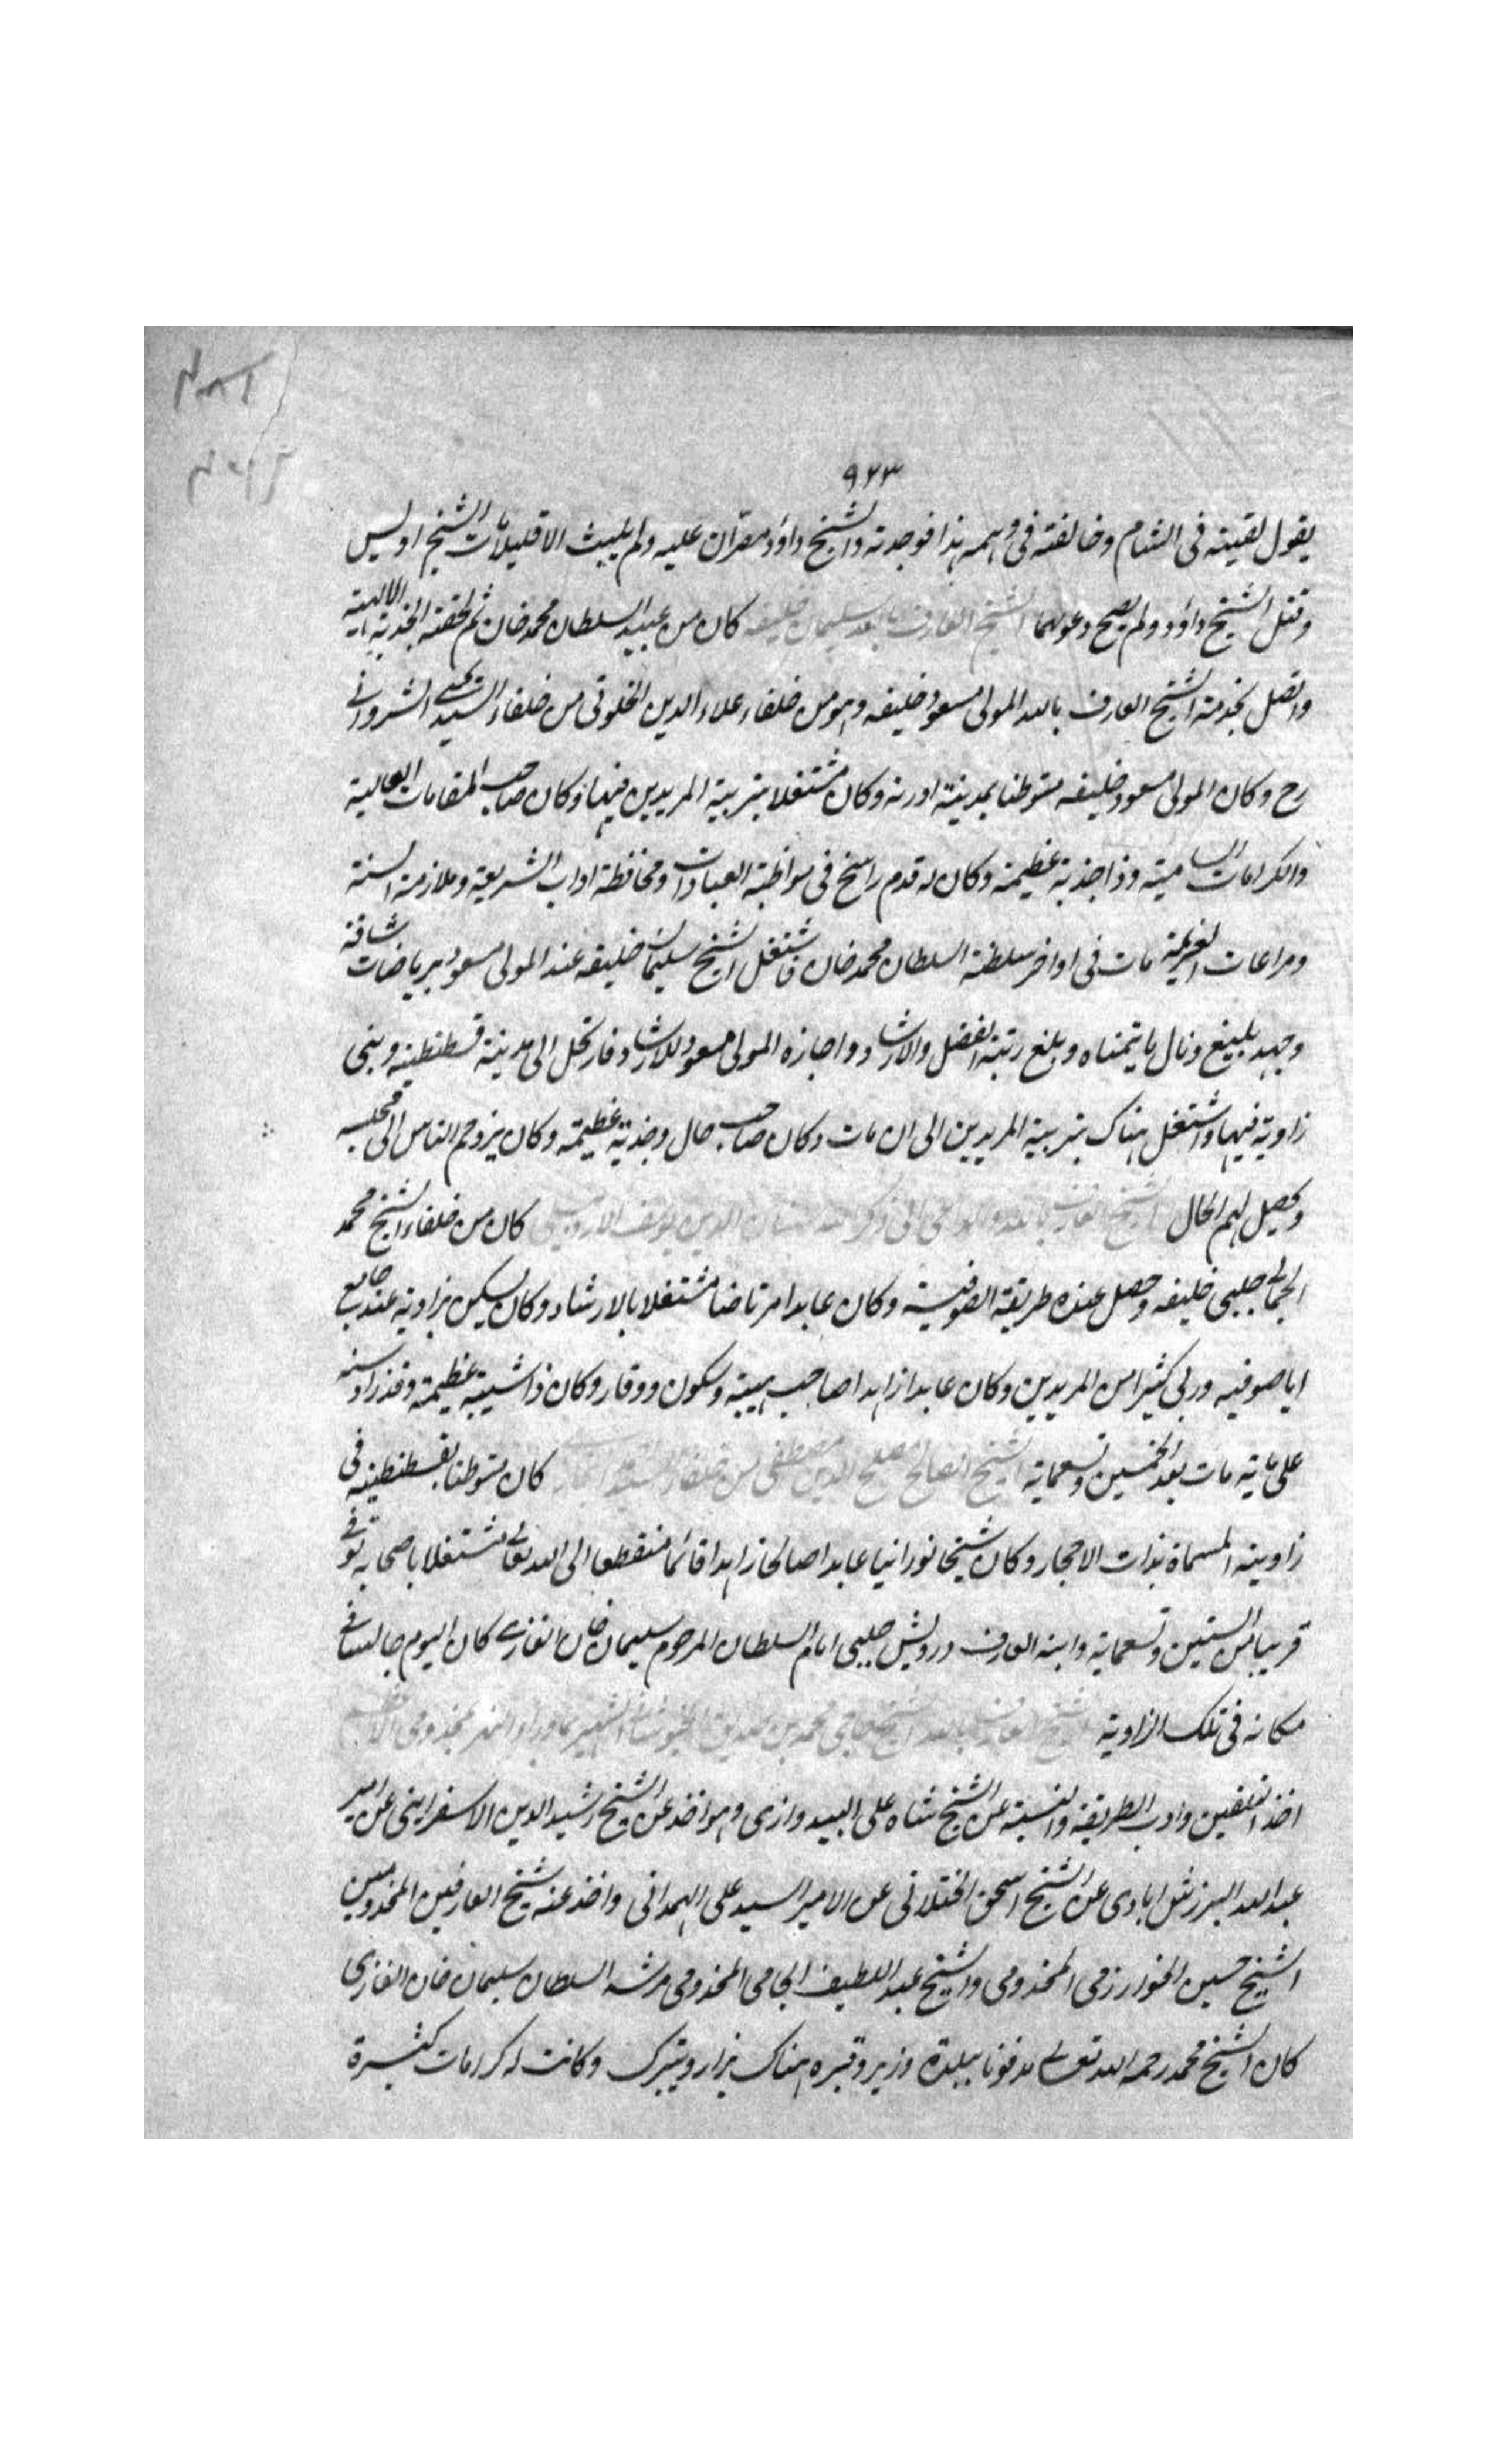 ٩٢٣
يقول لقيته فى الشام وخالفته فى وهمه هذا فوجدته والشيخ داؤد مصران عليه ولم يلبث الا قليلا مات الشيخ اويس
وقتل الشيخ داؤد ولم يصح دعوتهما الشيخ العارف بالله سليمان خليفه كان من عبيد السلطان محمد خان ثم لحقته الجذبة الالهية
واتصل بخدمة الشيخ العارف بالله المولى مسعود خليفه وهو من خلفاء علاء الدين الخلوتى من خلفاء السيد يحيى الشروانى
رح وكان المولى مسعود خليفه متوطنا بمدينة ادرنه وكان مشتغلا بتربية المريدين فيها وكان صاحب المقامات العالية
والكرامات السامية وذا جذبة عظيمة وكان له قدم راسخ فى مواظبة العبادات ومحافظة اداب الشريعة وملازمة السنة
ومراعات العزيمة مات فى اواخر سلطنة السلطان محمد خان فاشتغل الشيخ سليمان خليفه عند المولى مسعود برياضات شاقة
وجهد بليغ ونال ما يتمناه وبلغ رتبة الفضل والارشاد واجازه المولى مسعود للارشاد فارتحل الى مدينة قسطنطنية وبنى
زاوية فيها واشتغل هناك بتربية المريدين الى ان مات وكان صاحب حال وجذبة عظيمة وكان يزدحم الناس الى مجلسه
ويحصل لهم الحال الشيخ العارف بالله سنان الدين يوسف الاردبيلى كان من خلفاء الشيخ محمد
الجمالى جلبى خليفه وحصل عنده طريقة الصوفية وكان عابدا مرتاضا مشتغلا بالارشاد وكان يسكن بزاوية عند جامع
ايا صوفيه وربى كثيرا من المريدين وكان عابدا زاهدا صاحب هيبة وسكون ووقار وكان ذا شيبة عظيمة وقد زاد سنه
على ماية مات بعد الخمسين وتسعماية الشيخ الصالح مصلح الدين مصطفى من خلفاء السيد كان متوطنا بقسطنطنيه فى
زاوينه المسماة بذات الاحجار وكان شيخا نورانيا عابدا صالحا زاهدا قائما منقطعا الى الله تعالى مشتغلا باصحابه توفى
قريبا من الستين وتسعماية وابنه العارف درويش جلبى امام السلطان المرحوم سليمان خان الغازى كان اليوم جالسا فى
مكانه فى تلك الزاوية الشيخ العارف بالله الشيخ حاجى محمد بن صديق الخبوشانى الشهير بماوراء النهر بمخدومى الاعظم
اخذ التلقين وادب الطريقة والنسبة عن الشيخ شاه على البيدوازى وهو اخذ عن الشيخ رشيد الدين الاسفراينى عن امير
عبد الله البرزش ابادى عن الشيخ اسحق الختلانى عن الامير السيد على الهمدانى واخذ عنه شيخ العارفين المخدومين
الشيخ حسين الخوارزمى المخدومى والشيخ عبد اللطيف الجامى المخدومى مرشد السلطان سليمان خان الغازى
كان الشيخ محمد رحمه الله تعالى مدفونا ببلدة وزير وقبره هناك يزار ويتبرك وكانت له كرامات كثيرة